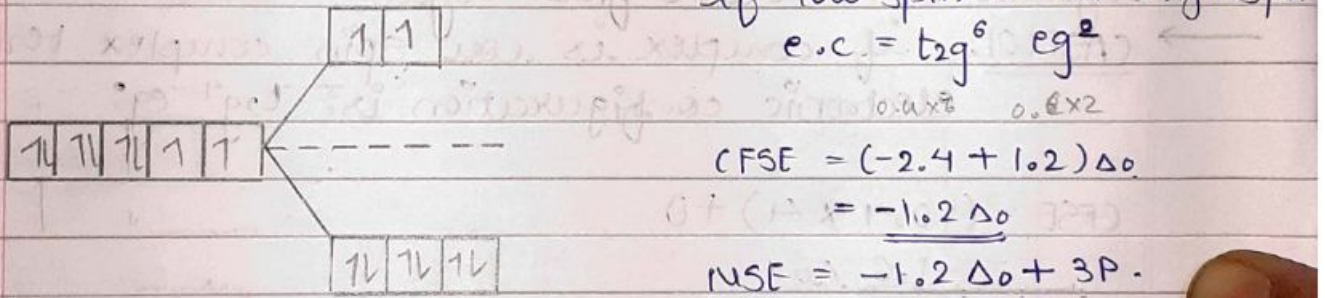 e.c = t₂g⁶ eg²
0.4x6 0.6x2
CFSE = (-2.4 + 1.2) Δo
= -1.2 Δo
NSE = -1.2 Δo + 3P.